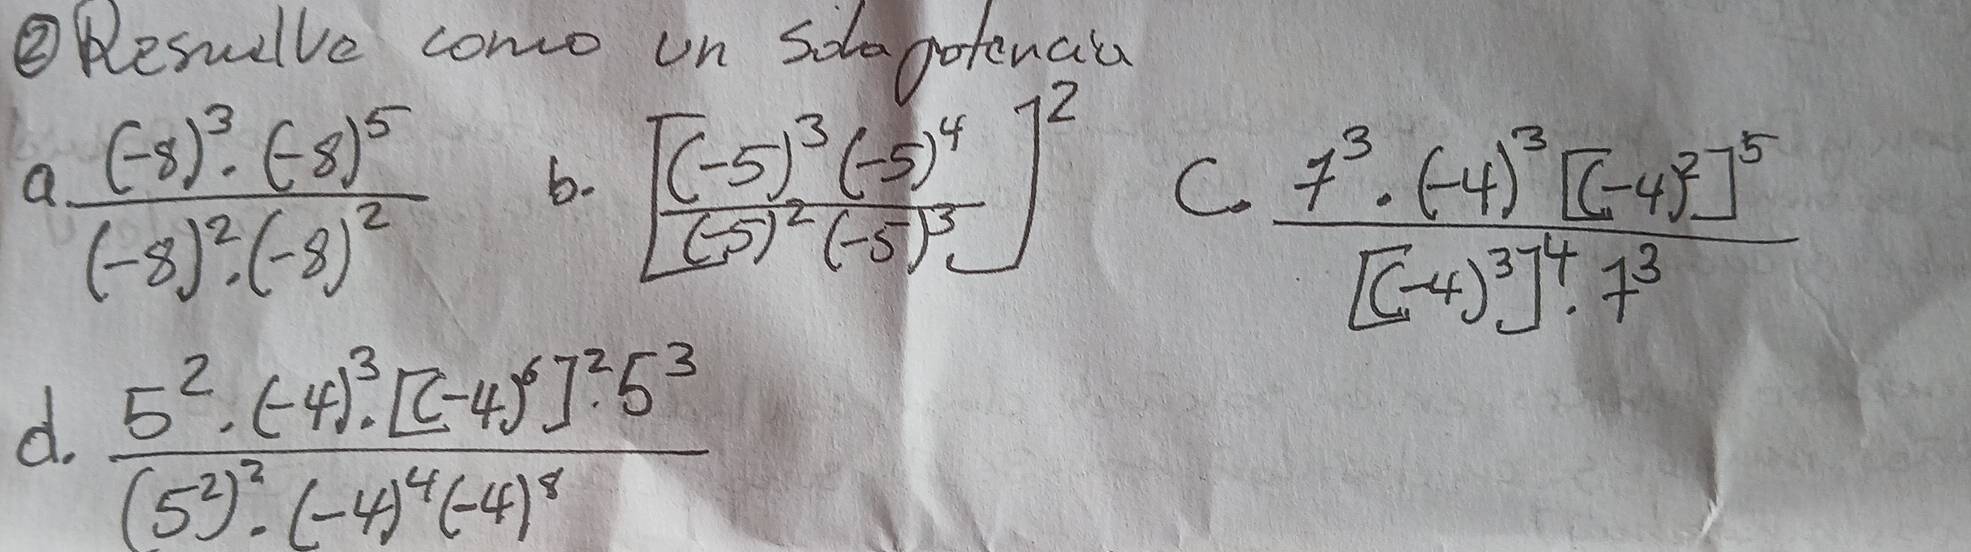 ② Resuelve como un sola potencia
a. (-8)³·(-8)⁵ / (-8)²·(-8)²
b. [(-5)³(-5)⁴ / (-5)²(-5)³]²
c. 7³·(-4)³[(-4)²]⁵ / [(-4)³]⁴·7³
d. 5²·(-4)³·[(-4)⁶]²·5³ / (5²)²·(-4)⁴(-4)⁸